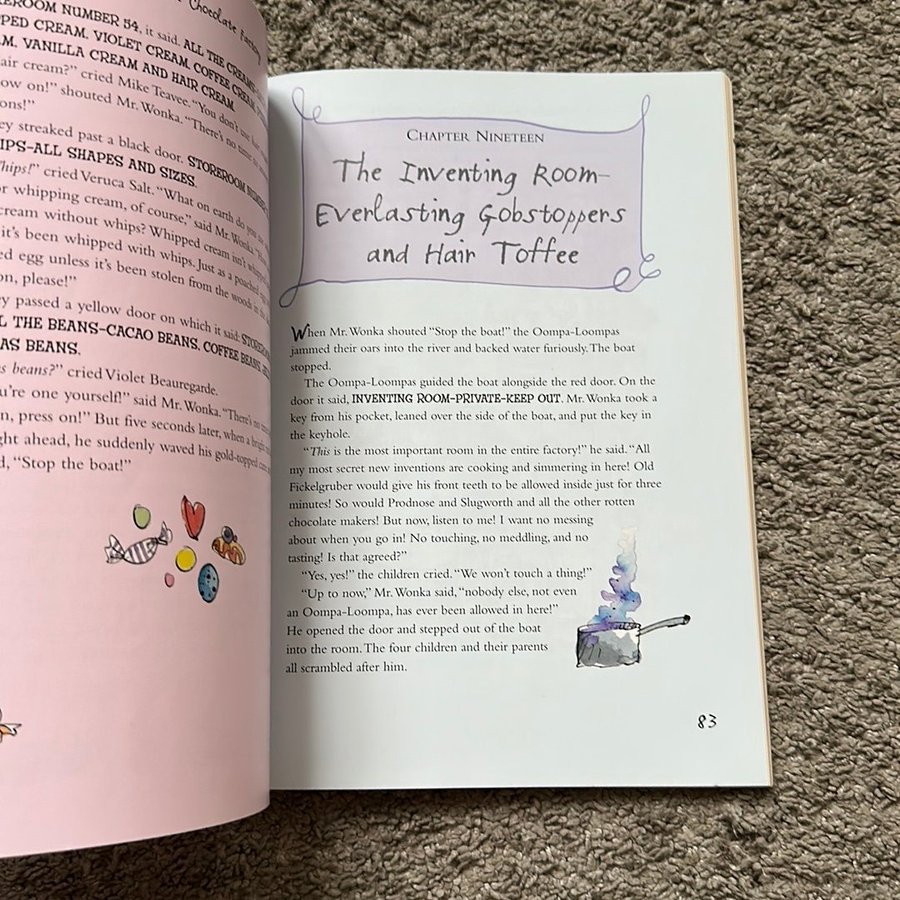 Chocolate Factory
EROOM NUMBER 54, it said. ALL THE CREAMS
PPED CREAM, VIOLET CREAM, COFFEE CREAM,
AM, VANILLA CREAM AND HAIR CREAM.
air cream?” cried Mike Teavee. “You don't use
ow on!” shouted Mr. Wonka. “There's no time to
ons!”
ey streaked past a black door. STOREROOM NUMBER
IPS–ALL SHAPES AND SIZES.
hips!” cried Veruca Salt. “What on earth do you
or whipping cream, of course,” said Mr. Wonka.
cream without whips? Whipped cream isn't whipped
it's been whipped with whips. Just as a poached egg
ed egg unless it's been stolen from the woods in the
on, please!”
ey passed a yellow door on which it said:
L THE BEANS–CACAO BEANS, COFFEE BEANS,
AS BEANS.
s beans?” cried Violet Beauregarde.
u're one yourself!” said Mr. Wonka. “There's no
n, press on!” But five seconds later, when a bright
ght ahead, he suddenly waved his gold-topped cane
d, “Stop the boat!”
CHAPTER NINETEEN
The Inventing Room–
Everlasting Gobstoppers
and Hair Toffee
When Mr. Wonka shouted “Stop the boat!” the Oompa-Loompas
jammed their oars into the river and backed water furiously. The boat
stopped.
The Oompa-Loompas guided the boat alongside the red door. On the
door it said, INVENTING ROOM–PRIVATE–KEEP OUT. Mr. Wonka took a
key from his pocket, leaned over the side of the boat, and put the key in
the keyhole.
“This is the most important room in the entire factory!” he said. “All
my most secret new inventions are cooking and simmering in here! Old
Fickelgruber would give his front teeth to be allowed inside just for three
minutes! So would Prodnose and Slugworth and all the other rotten
chocolate makers! But now, listen to me! I want no messing
about when you go in! No touching, no meddling, and no
tasting! Is that agreed?”
“Yes, yes!” the children cried. “We won't touch a thing!”
“Up to now,” Mr. Wonka said, “nobody else, not even
an Oompa-Loompa, has ever been allowed in here!”
He opened the door and stepped out of the boat
into the room. The four children and their parents
all scrambled after him.
83